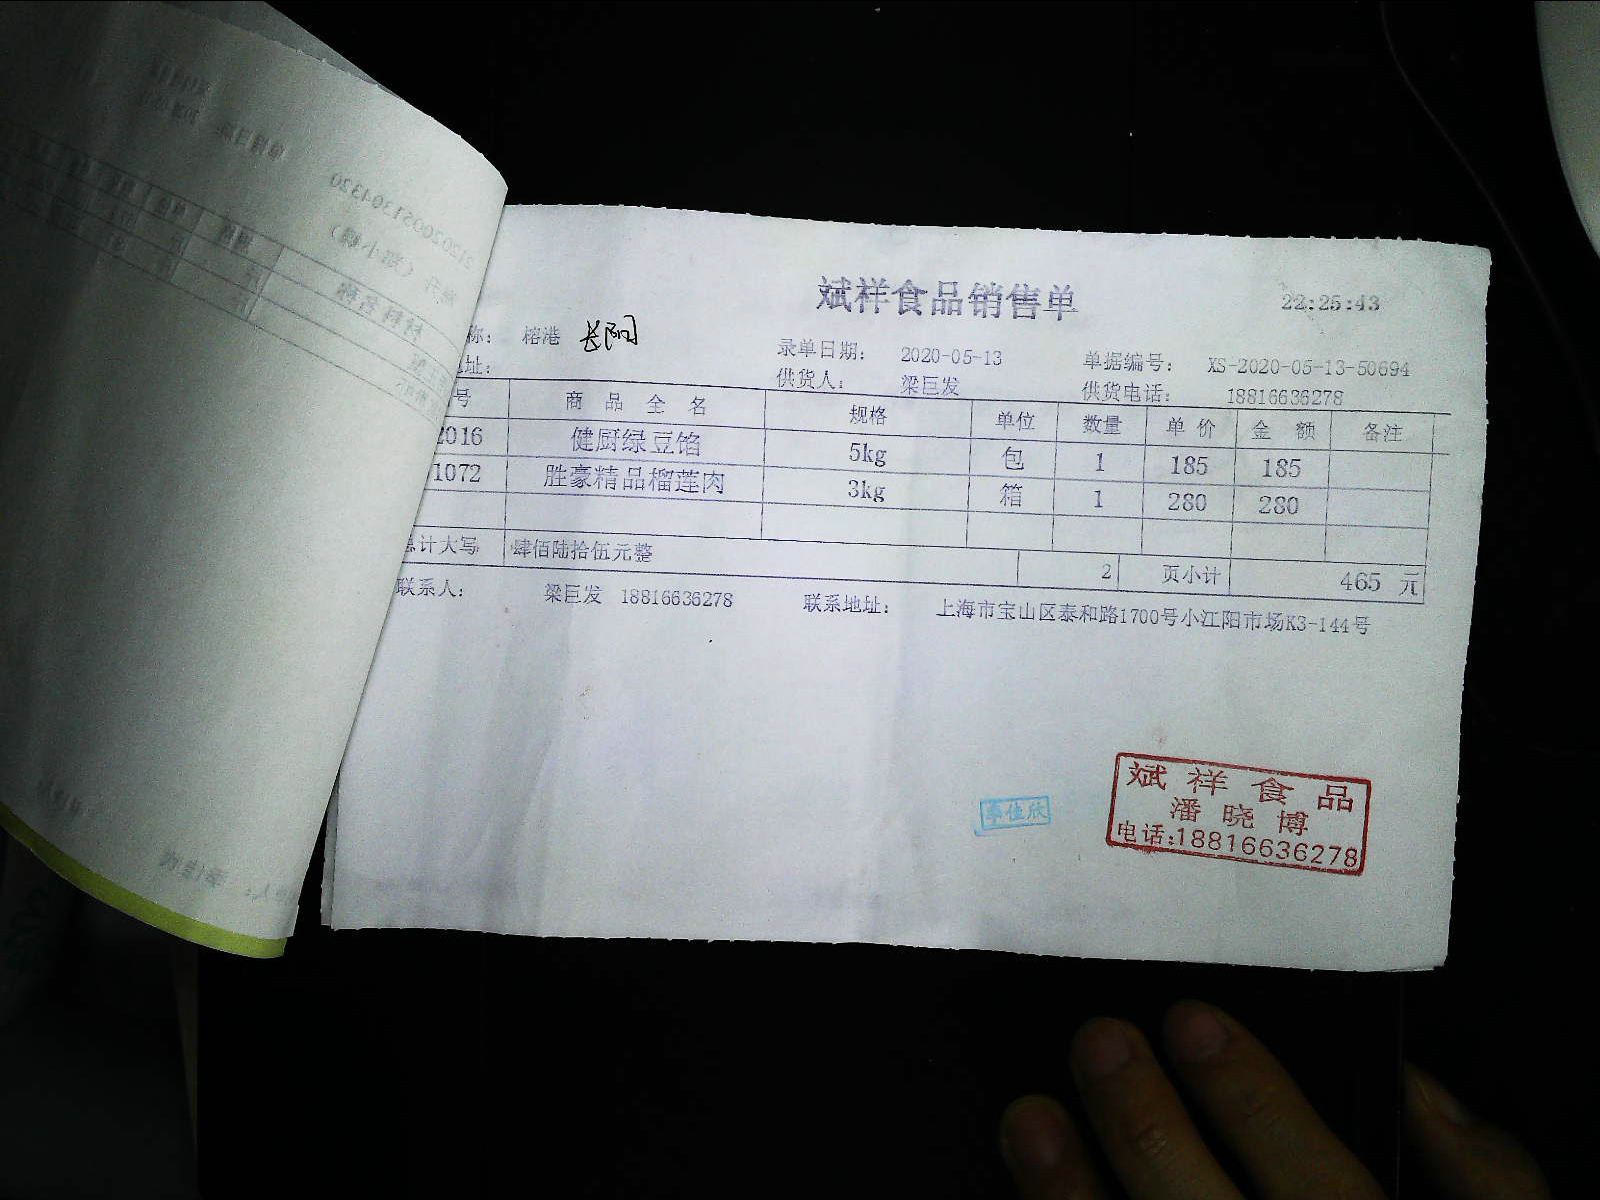 斌祥食品销售单
22:25:43
称: 榕港 长阳
录单日期: 2020-05-13 单据编号: XS-2020-05-13-50694
址: 供货人: 梁巨发 供货电话: 18816636278
号 商品全名 规格 单位 数量 单价 金额 备注
2016 健厨绿豆馅 5kg 包 1 185 185
1072 胜豪精品榴莲肉 3kg 箱 1 280 280
总计大写 肆佰陆拾伍元整 2 页小计 465 元
联系人: 梁巨发 18816636278 联系地址: 上海市宝山区泰和路1700号小江阳市场K3-144号
斌祥食品
潘晓博
电话:18816636278